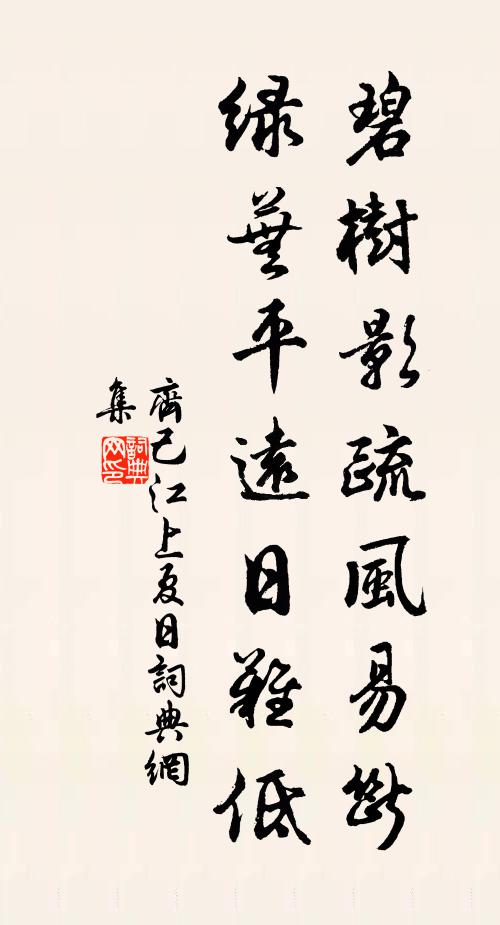 碧樹影疏風易斷
綠蕪平遠日難低
齊己江上夏日詞典網
集
詞典網印